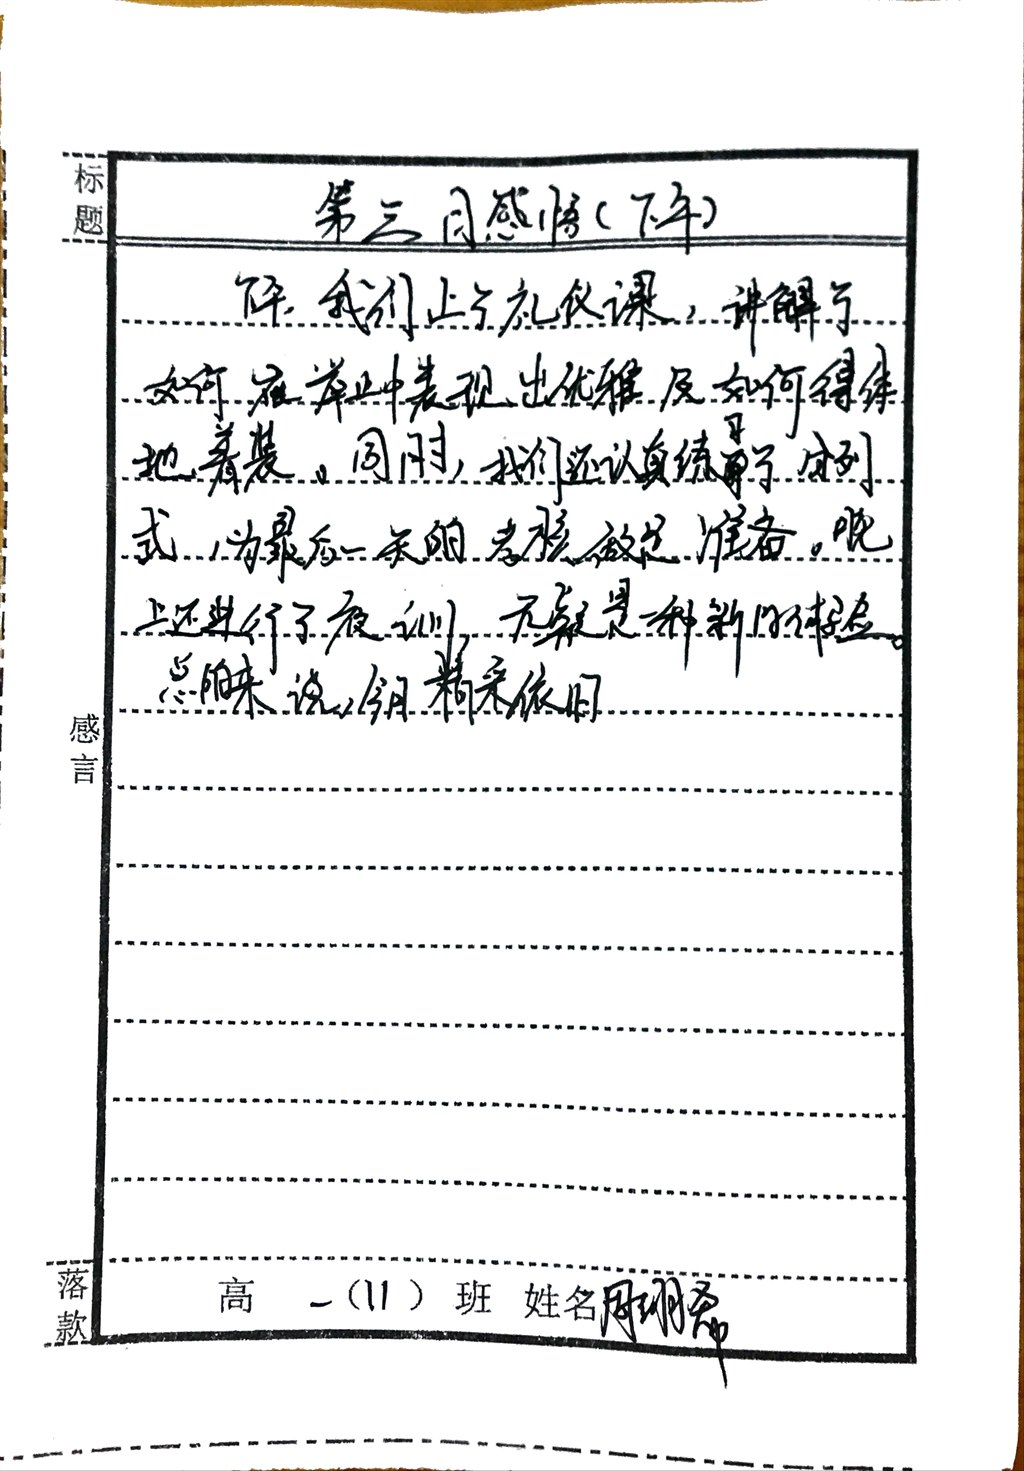 标题
第三日感悟(下午)
下午,我们上了礼仪课,讲解了
如何在举止中表现出优雅及如何得体
地着装。同时,我们还认真练习了队列
式,为最后一天的考核做足准备。晚
上还进行了夜训,无疑是一种新的体验。
总的来说,今日精采依旧
感言
落款
高一(11)班 姓名周珊希